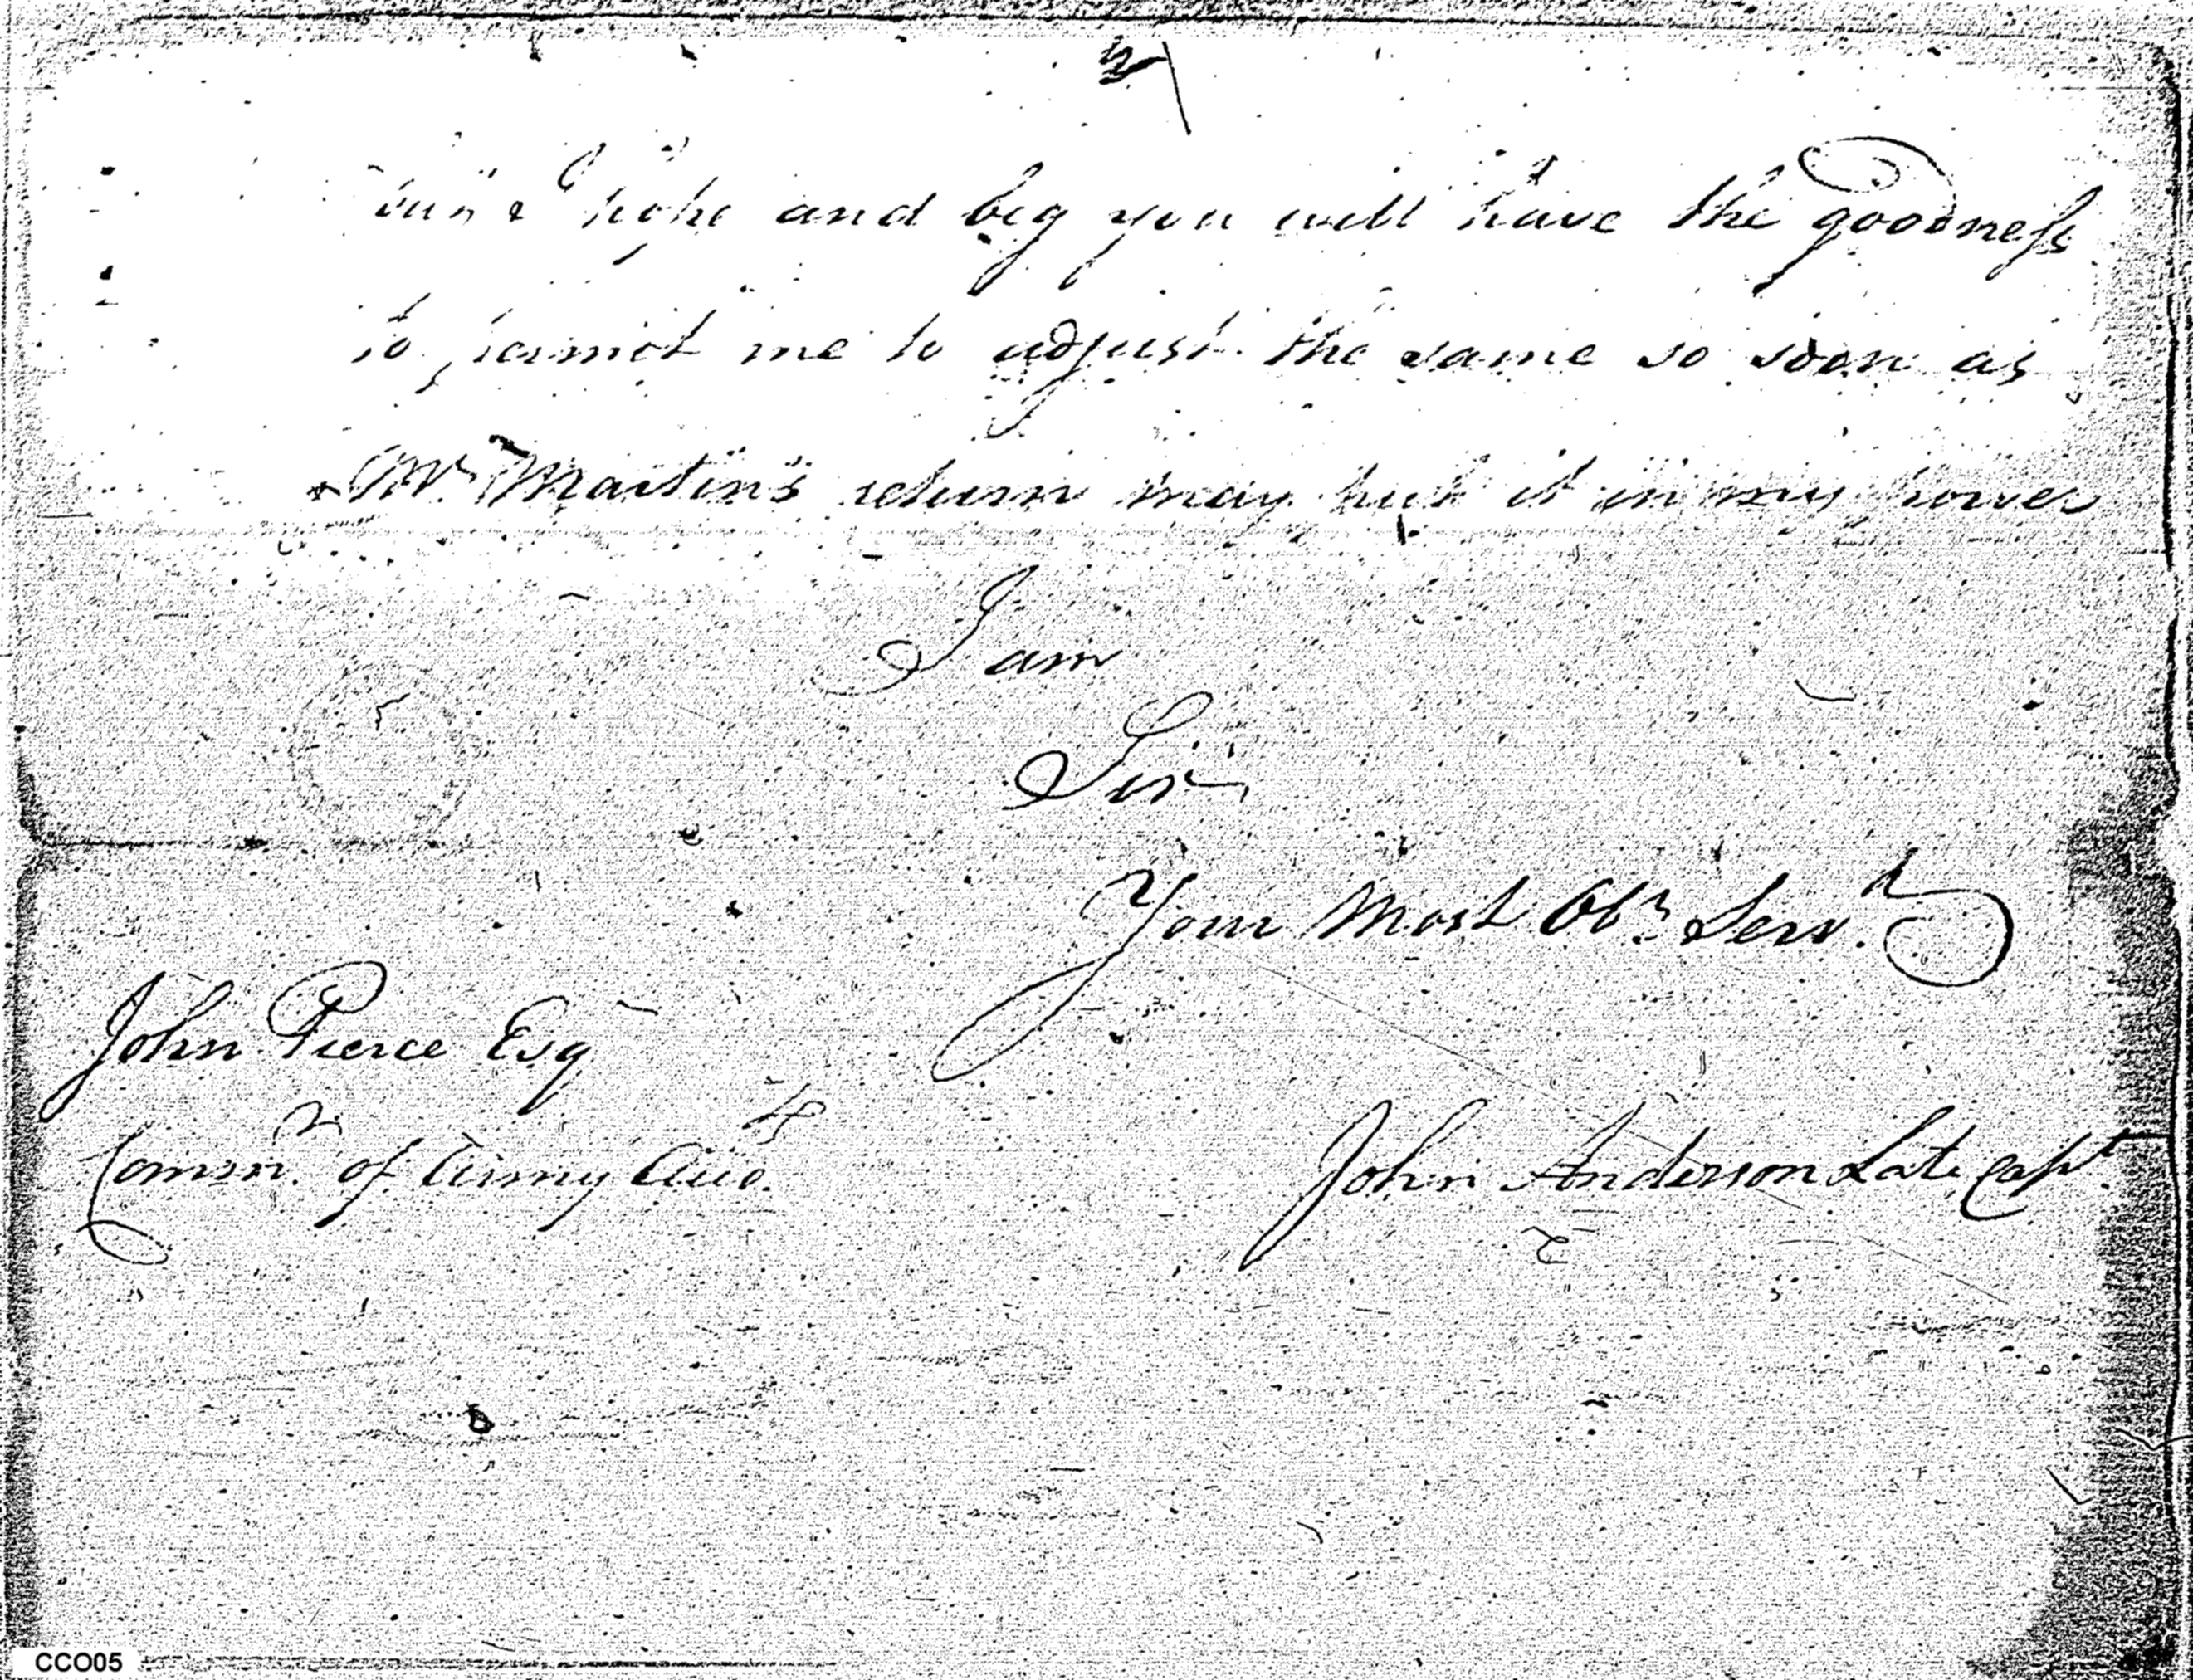 hope and beg you will have the goodness
to permit me to adjust the same so soon as
Mr. Martin's return may put it in my power
I am
Sir
Your Most Obt. Servt.
John Pierce Esq
Commr. of Army Accts.
John Anderson Late Capt.
CCO05